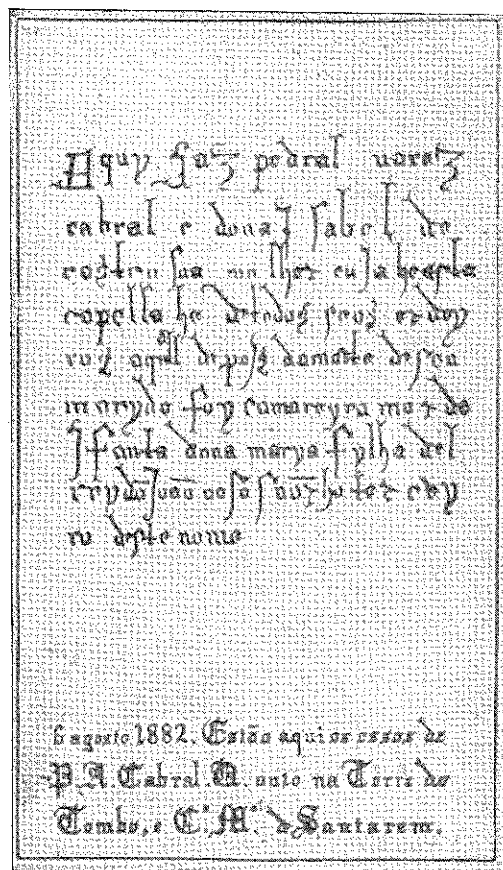 Aquy Jaz pedral uarez
cabral e dona Jsabel de
castro sua molher cuja he esta
capella he de todos seus erdey
ros aquall depois damorte de seu
marydo foy camareyra mor da
Jfanta dona marya fylha del
rey dõ João noso sñor hu tercey
ro deste nome
6 agosto 1882. Estão aqui os ossos de
P. A. Cabral. auto na Torre do
Tombo, e C.ª M.ª de Santarem.